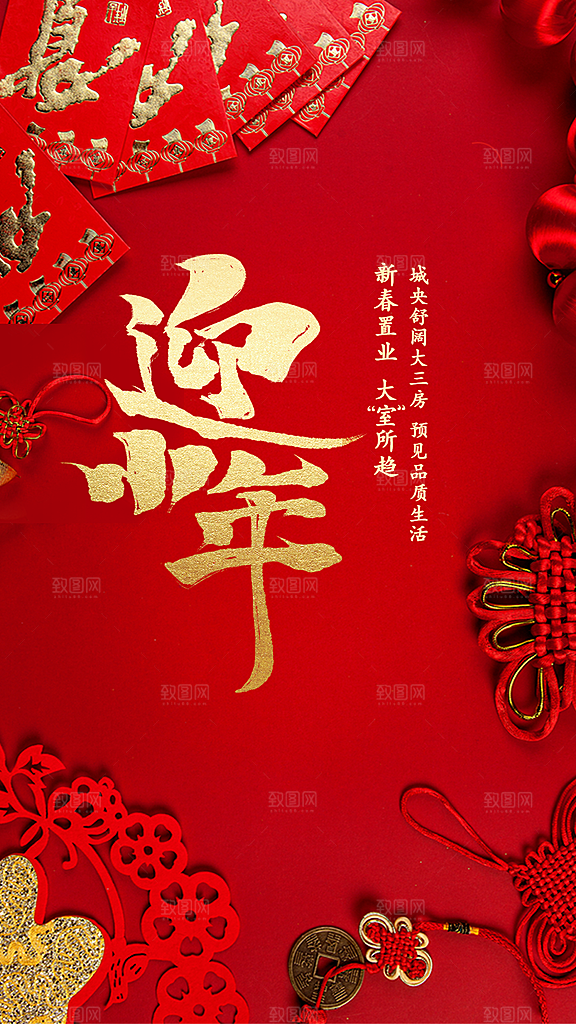 迎小年
城央舒阔大三房 预见品质生活
新春置业 大“室”所趋
致图网